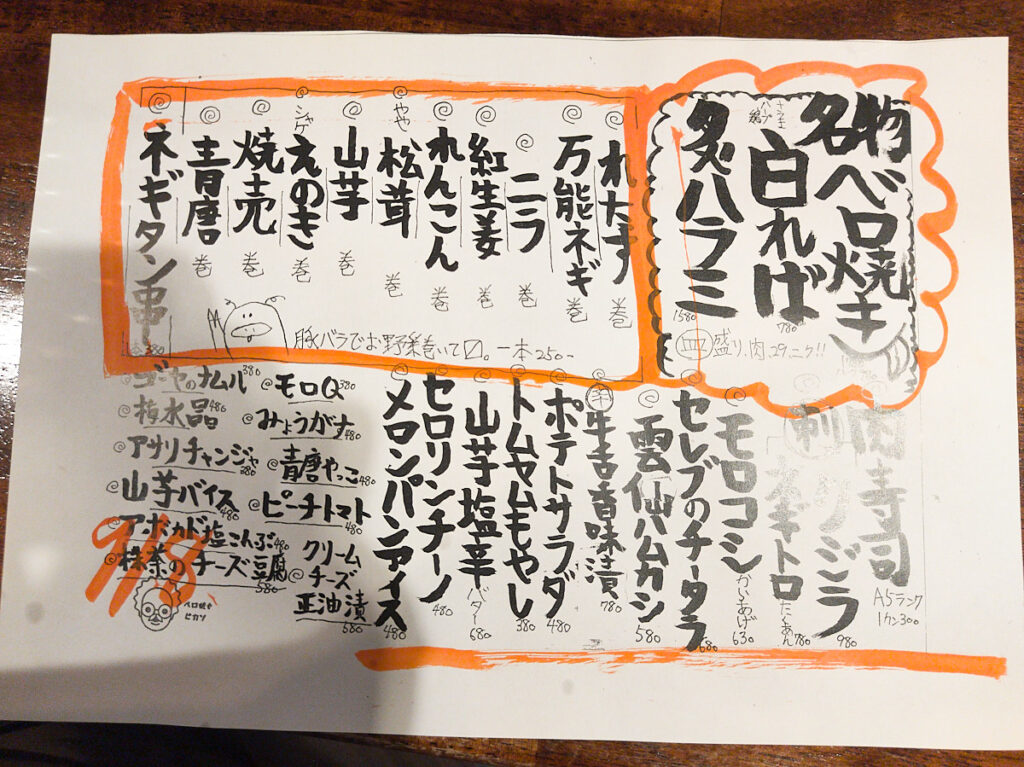 名物ベロ焼き
白ればー
780
タンハラミ
1580
皿盛り、肉29ニク!!
れたす巻
万能ネギ巻
ニラ巻
紅生姜巻
れんこん巻
やや松茸巻
山芋巻
シャケえのき巻
焼売巻
青唐巻
ネギタン串
380
豚バラでお野菜巻いて〼。一本250-
肉寿司
A5ランク
1カン300
980
牽牛トロ
たくあん780
モロコシ
かいあげ630
セレブのチータラ
680
雲仙ハムカシ
580
牛舌香味漬
780
ポテトサラダ
480
トムヤムもやし
380
山芋塩辛
バター680
セロリンチーノ
480
メロンパンアイス
480
モロQ 380
みょうがナ 480
青唐やっこ 480
ピーチトマト 480
クリームチーズ正油漬 580
ゴーヤのナムル 380
梅水晶 480
アサリチャンジャ 380
山芋バイス 480
アボカド塩こんぶ 480
抹茶のチーズ豆腐 580
9/18
ベロ焼き
ピカソ